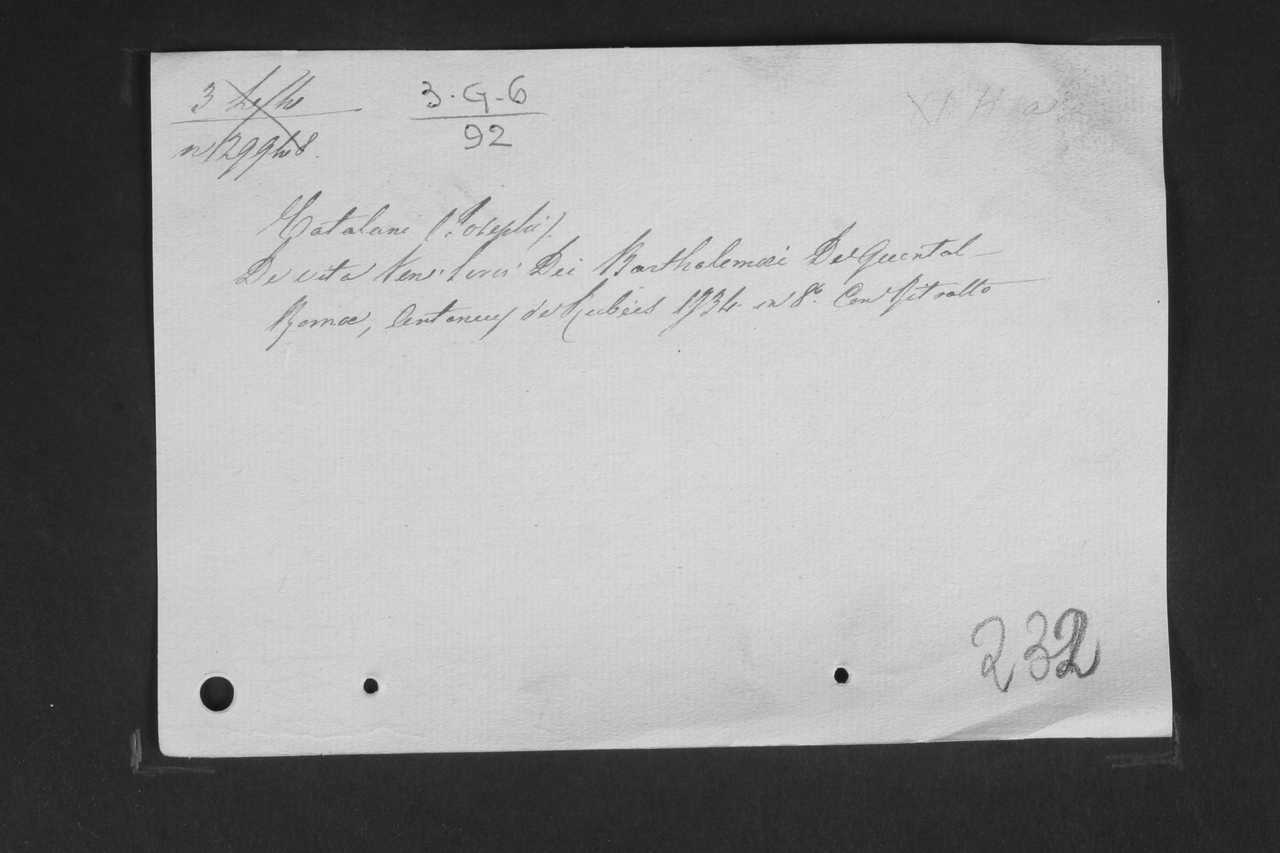 3
3·G-6
92
Catalani (Josephi).
De vita Ven: Servi Dei Bartholemæi De Quental—
Romæ, Antonius de Rubeis 1734 in 8º. Con Ritratto
232